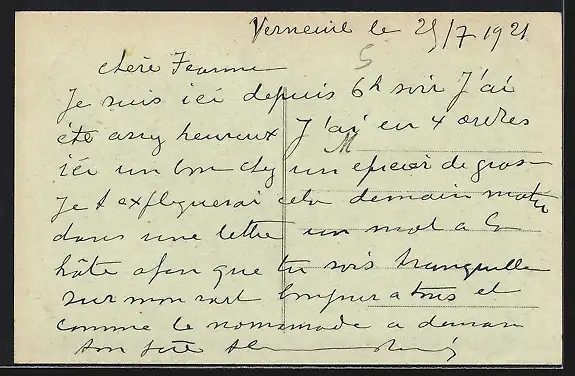 Verneuil le 25/7 1921
5
chère Jeanne
Je suis ici depuis 6h soir J'ai
été assez heureux J'ai eu 4 ordres
M
ici un bon chez un epicier de gros
Je t expliquerai cela demain matin
dans une lettre un mot a la
hâte afin que tu sois tranquille
sur mon sort bonjour a tous et
comme le nommade a demain
ton